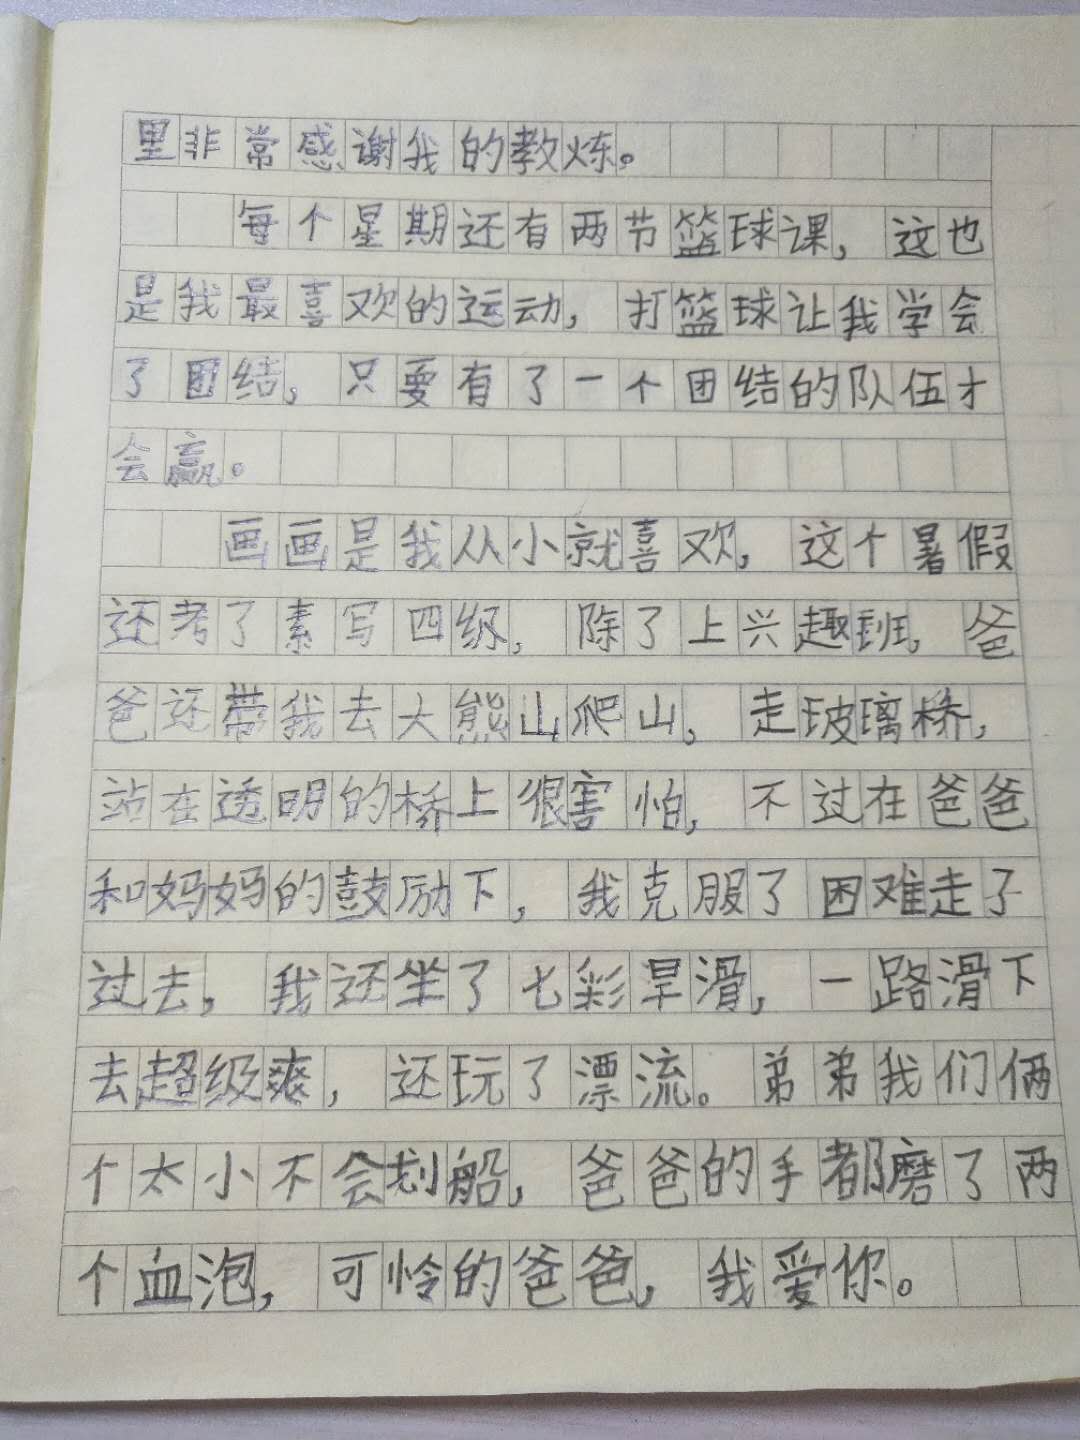 里非常感谢我的教炼。
每个星期还有两节篮球课，这也
是我最喜欢的运动，打篮球让我学会
了团结，只要有了一个团结的队伍才
会赢。
画画是我从小就喜欢，这个暑假
还考了素写四级，除了上兴趣班，爸
爸还带我去大熊山爬山，走玻璃桥，
站在透明的桥上很害怕，不过在爸爸
和妈妈的鼓励下，我克服了困难走了
过去，我还坐了七彩旱滑，一路滑下
去超级爽，还玩了漂流。弟弟我们俩
个太小不会划船，爸爸的手都磨了两
个血泡，可怜的爸爸，我爱你。